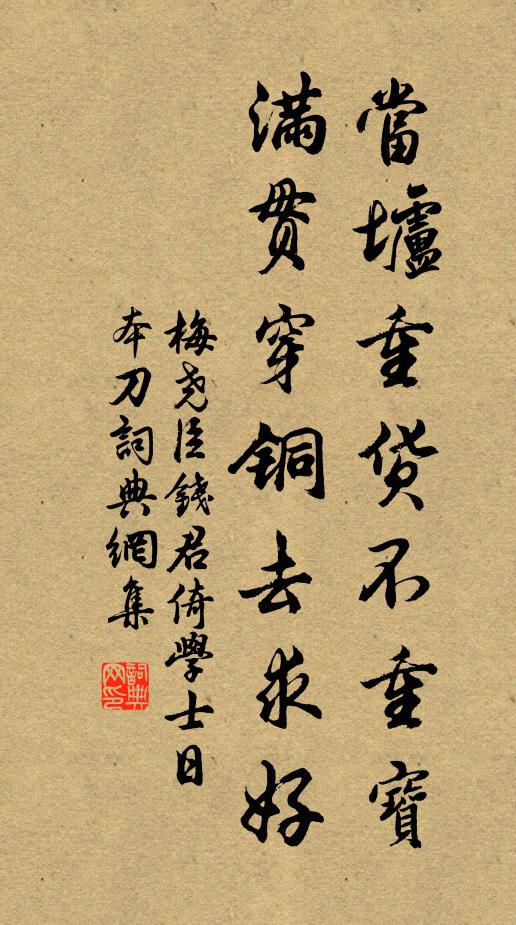 當壚重貨不重寶
滿貫穿銅去求好
梅堯臣錢君倚學士日
本刀詞典網集
詞典
网印